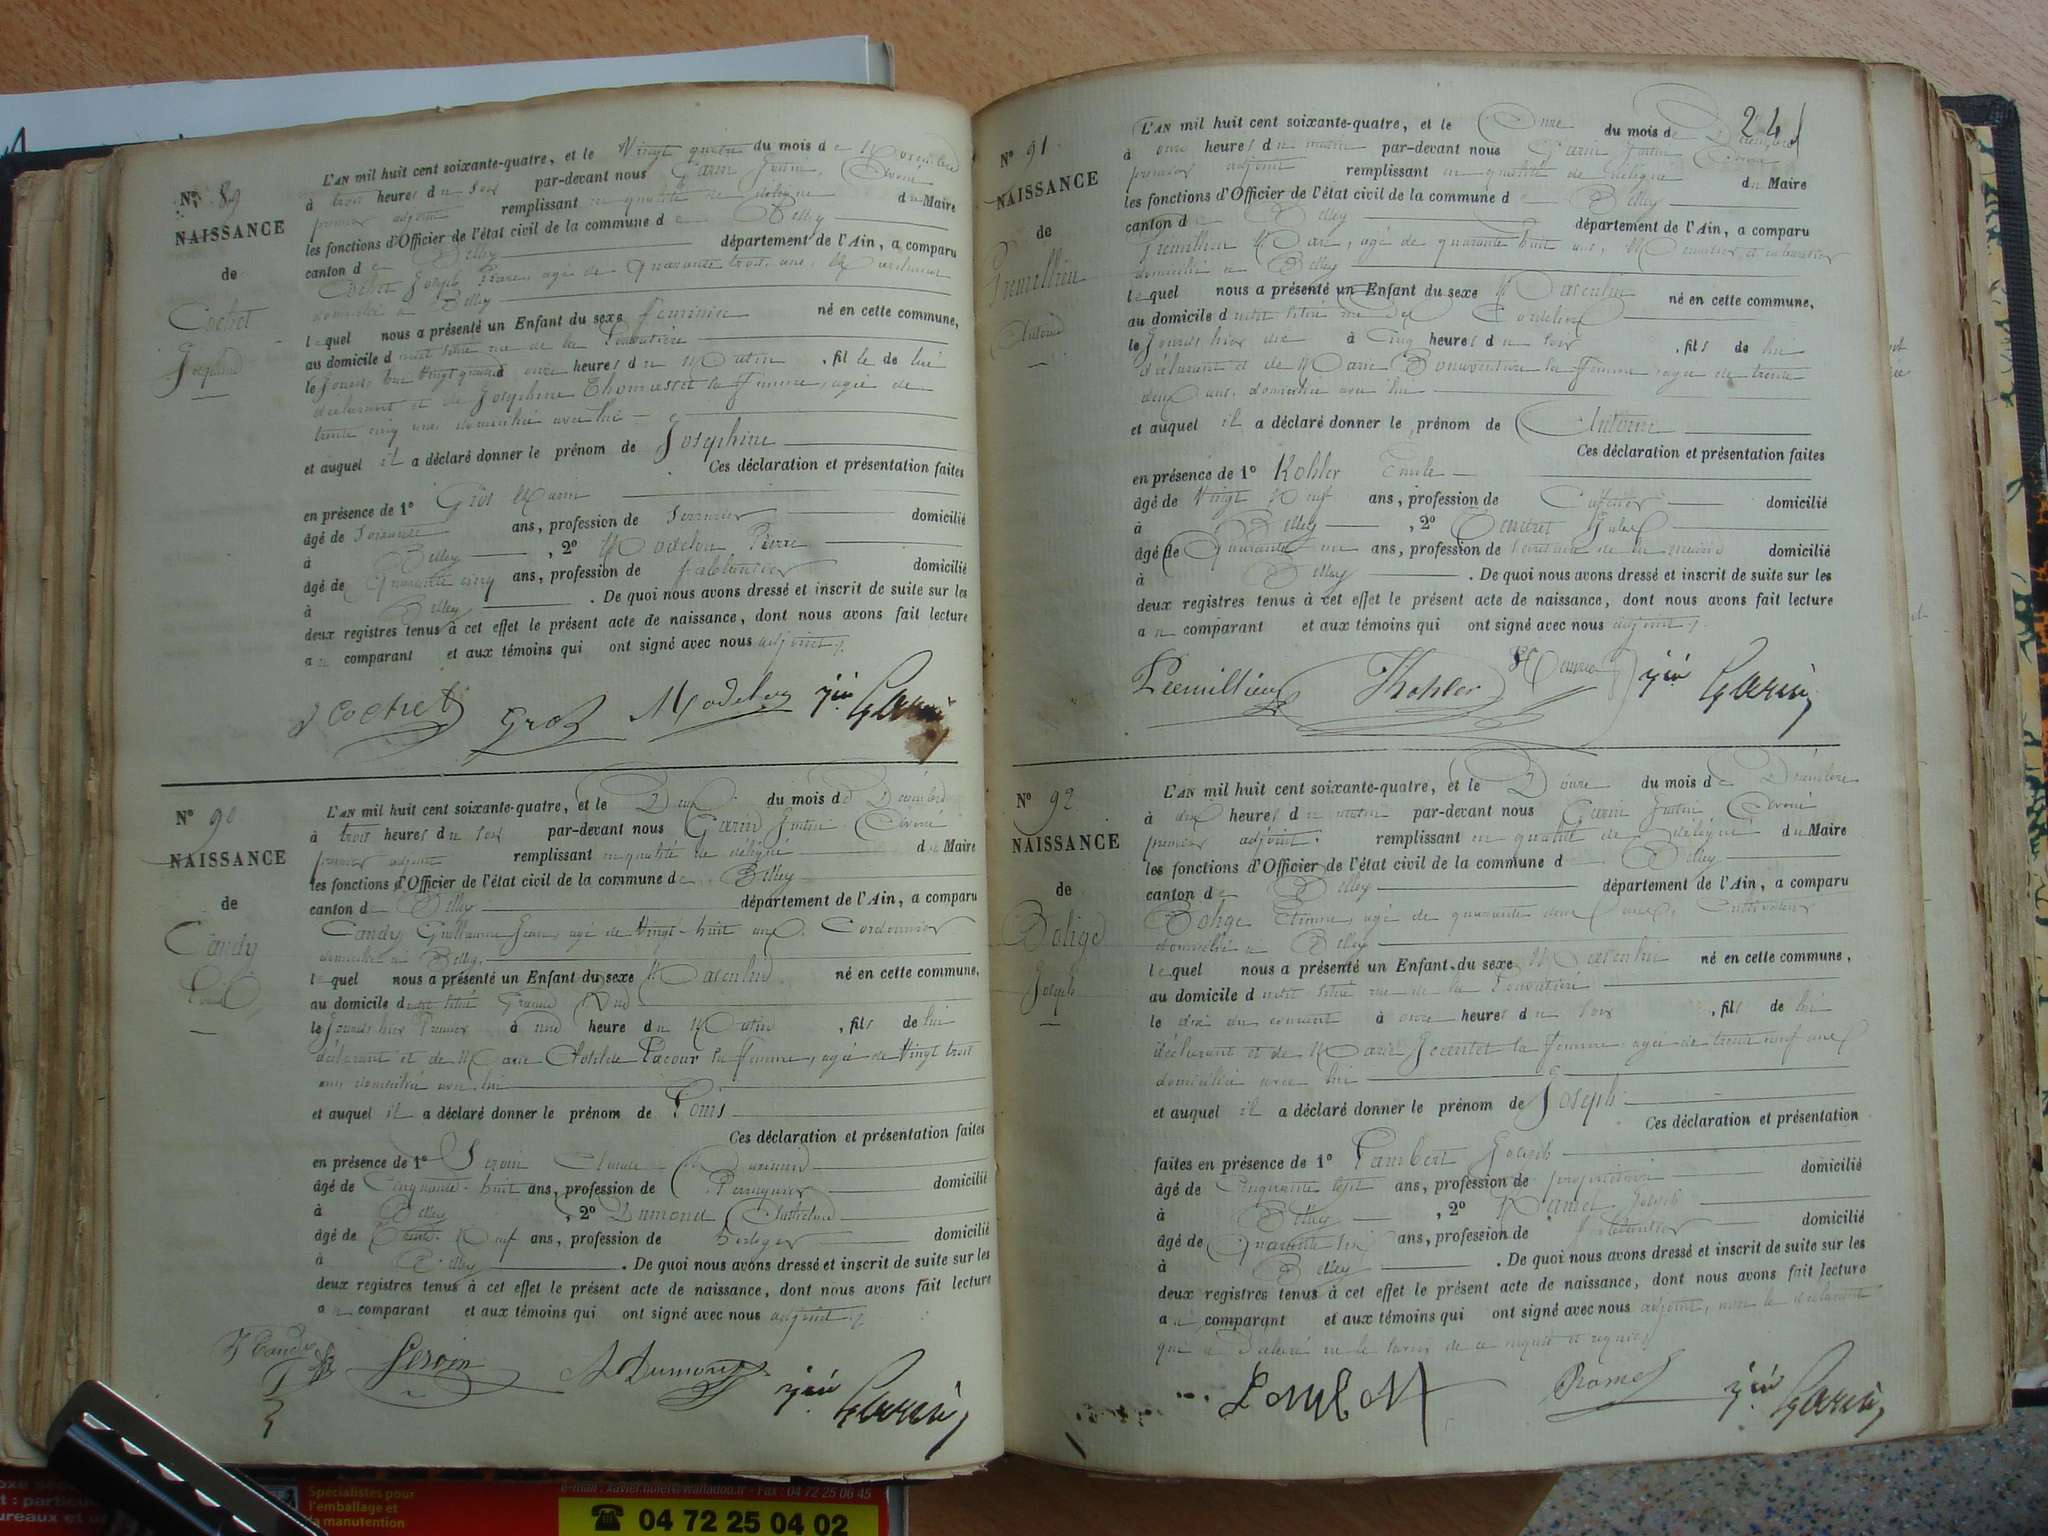 N° 89
NAISSANCE
de
Cochet
L'AN mil huit cent soixante-quatre, et le Vingt quatre du mois de Novembre
à trois heures du soir par-devant nous Garin Justin,
premier adjoint remplissant en qualité de délégué du Maire
les fonctions d'Officier de l'état civil de la commune de Belley
canton de Belley département de l'Ain, a comparu
Cochet Joseph Pierre, agé de quarante trois ans,
domicilié à Belley
lequel nous a présenté un Enfant du sexe féminin né en cette commune,
au domicile d situé rue de la
le onze heures du Matin, fille de lui
déclarant et de Joséphine Thomasset sa femme, agée de
trente cinq ans domiciliée avec lui
et auquel il a déclaré donner le prénom de Joséphine
Ces déclaration et présentation faites
en présence de 1° Gros Marin
âgé de soixante ans, profession de serrurier domicilié
à Belley, 2° Modelon Pierre
âgé de Quarante cinq ans, profession de ferblantier domicilié
à Belley. De quoi nous avons dressé et inscrit de suite sur les
deux registres tenus à cet effet le présent acte de naissance, dont nous avons fait lecture
au comparant et aux témoins qui ont signé avec nous adjoint.
J Cochet Gros Modelon Jin Garin
N° 90
NAISSANCE
de
Candy
Louis
L'AN mil huit cent soixante-quatre, et le Deux du mois de Décembre
à trois heures du soir par-devant nous Garin Justin
premier adjoint remplissant en qualité de délégué du Maire
les fonctions d'Officier de l'état civil de la commune de Belley
canton de Belley département de l'Ain, a comparu
Candy Guillaume Jean, agé de Vingt-huit ans, Cordonnier
domicilié à Belley,
lequel nous a présenté un Enfant du sexe Masculin né en cette commune,
au domicile d situé Grande Rue
le jour d'hier Premier à une heure du Matin, fils de lui
déclarant et de Marie Clotilde Lacour sa femme, agée de Vingt trois
ans domiciliée avec lui
et auquel il a déclaré donner le prénom de Louis
Ces déclaration et présentation faites
en présence de 1° Seroin Claude
âgé de Cinquante-huit ans, profession de Perruquier domicilié
à Belley, 2° Dumond Anthelme
âgé de Trente Neuf ans, profession de horloger domicilié
à Belley. De quoi nous avons dressé et inscrit de suite sur les
deux registres tenus à cet effet le présent acte de naissance, dont nous avons fait lecture
au comparant et aux témoins qui ont signé avec nous adjoint.
Candy Seroin A Dumond Jin Garin
241
N° 91
NAISSANCE
de
Premillieu
Antoine
L'AN mil huit cent soixante-quatre, et le Onze du mois de Décembre
à onze heures du matin par-devant nous Garin Justin
premier adjoint remplissant en qualité de délégué du Maire
les fonctions d'Officier de l'état civil de la commune de Belley
canton de Belley département de l'Ain, a comparu
Premillieu Marc, agé de quarante huit ans, Menuisier et cabaretier
domicilié à Belley
lequel nous a présenté un Enfant du sexe Masculin né en cette commune,
au domicile d situé rue des
le jour d'hier dix à Cinq heures du soir, fils de lui
déclarant et de Marie Bonaventure sa femme agée de trente
deux ans, domiciliée avec lui
et auquel il a déclaré donner le prénom de Antoine
Ces déclaration et présentation faites
en présence de 1° Kohler Emile
âgé de Vingt Neuf ans, profession de Cafetier domicilié
à Belley, 2°
âgé de Quarante un ans, profession de secrétaire de la mairie domicilié
à Belley. De quoi nous avons dressé et inscrit de suite sur les
deux registres tenus à cet effet le présent acte de naissance, dont nous avons fait lecture
au comparant et aux témoins qui ont signé avec nous adjoint.
Premillieu Kohler Jin Garin
N° 92
NAISSANCE
de
Bolige
Joseph
L'AN mil huit cent soixante-quatre, et le Douze du mois de Décembre
à dix heures du matin par-devant nous Garin Justin
premier adjoint remplissant en qualité de délégué du Maire
les fonctions d'Officier de l'état civil de la commune de Belley
canton de Belley département de l'Ain, a comparu
Bolige Etienne, agé de quarante deux ans, Cultivateur
domicilié à Belley
lequel nous a présenté un Enfant du sexe Masculin né en cette commune,
au domicile d situé rue de la
le dix du courant à onze heures du soir, fils de lui
déclarant et de Marie sa femme agée de trente neuf ans
domiciliée avec lui
et auquel il a déclaré donner le prénom de Joseph
Ces déclaration et présentation
faites en présence de 1° Lambert Joseph
âgé de Cinquante sept ans, profession de propriétaire domicilié
à Belley, 2° Ramel Joseph
âgé de Quarante six ans, profession de ferblantier domicilié
à Belley. De quoi nous avons dressé et inscrit de suite sur les
deux registres tenus à cet effet le présent acte de naissance, dont nous avons fait lecture
au comparant et aux témoins qui ont signé avec nous adjoint, non le déclarant
qui a déclaré ne le savoir de ce requis
Ramel Jin Garin
Spécialistes pour
l'emballage et
la manutention
04 72 25 04 02
Fax : 04 72 25 06 45